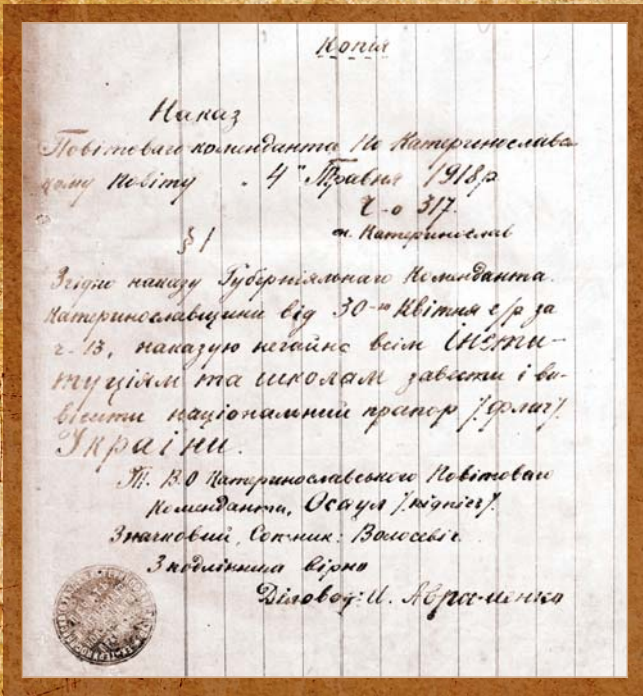 Копія
Наказ
Повітового коменданта По Катеринославс-
кому Повіту „4" Травня 1918р.
Ч-о 317.
м. Катеринослав
§ 1
Згідно наказу Губерніяльнаго Коменданта
Катеринославщини від 30-го Квітня с/р за
ч. 13, наказую негайно всім Інсти-
туціям та школам завести і ви-
вісити національний прапор /флаг/
України.
Т. В. О Катеринославського Повітоваго
Коменданта, Осаул /підпіс/.
Значковий, Сотник: Волосевіч
З подлінника вірно
Діловод: И. Авраменко